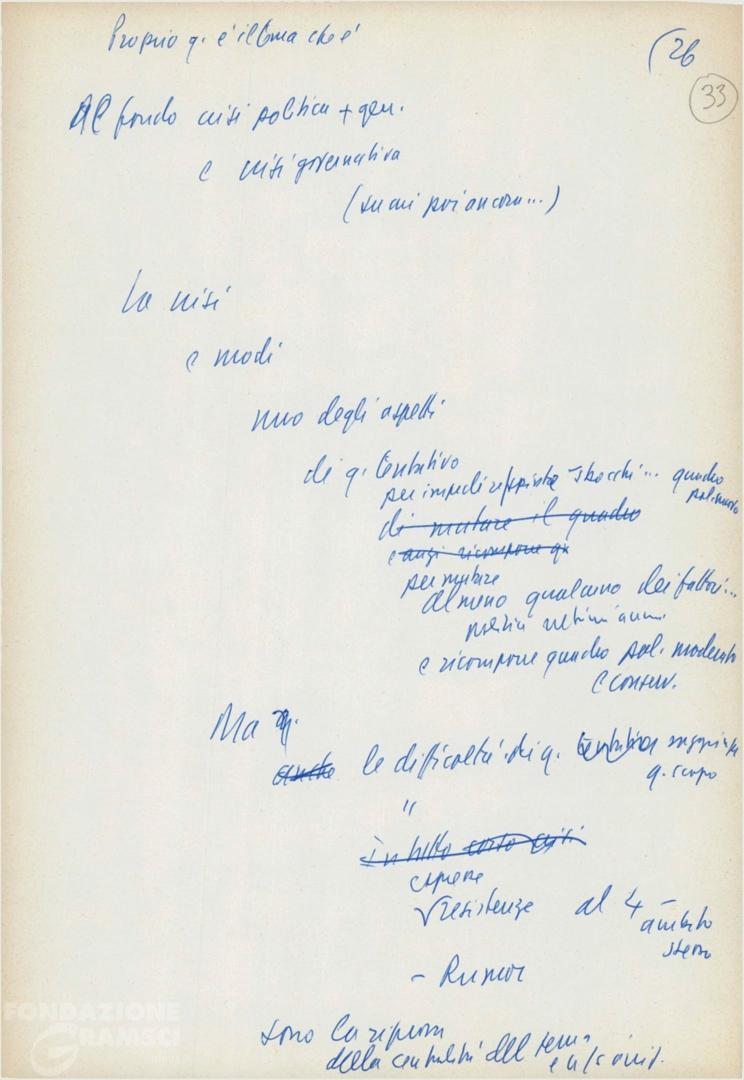 Proprio q. è il tema che è
(26
33
Al fondo crisi politica + gen.
e crisi governativa
(su cui poi ancora...)
La crisi
e modi
uno degli aspetti
di q. tentativo
per impedire sbocchi... quadro
pol. nuovo
di mutare il quadro
e anzi ricomporre q
per mutare
almeno qualcuno dei fattori...
ultimi anni
e ricomporre quadro pol. moderato
e conserv.
Ma q.
anche le difficoltà di q. tentativo
q. scopo
"
in tutto corso crisi
resistenze al 4 -
ambito
stesso
- Rumor
sono la riprova
della centralità del tema